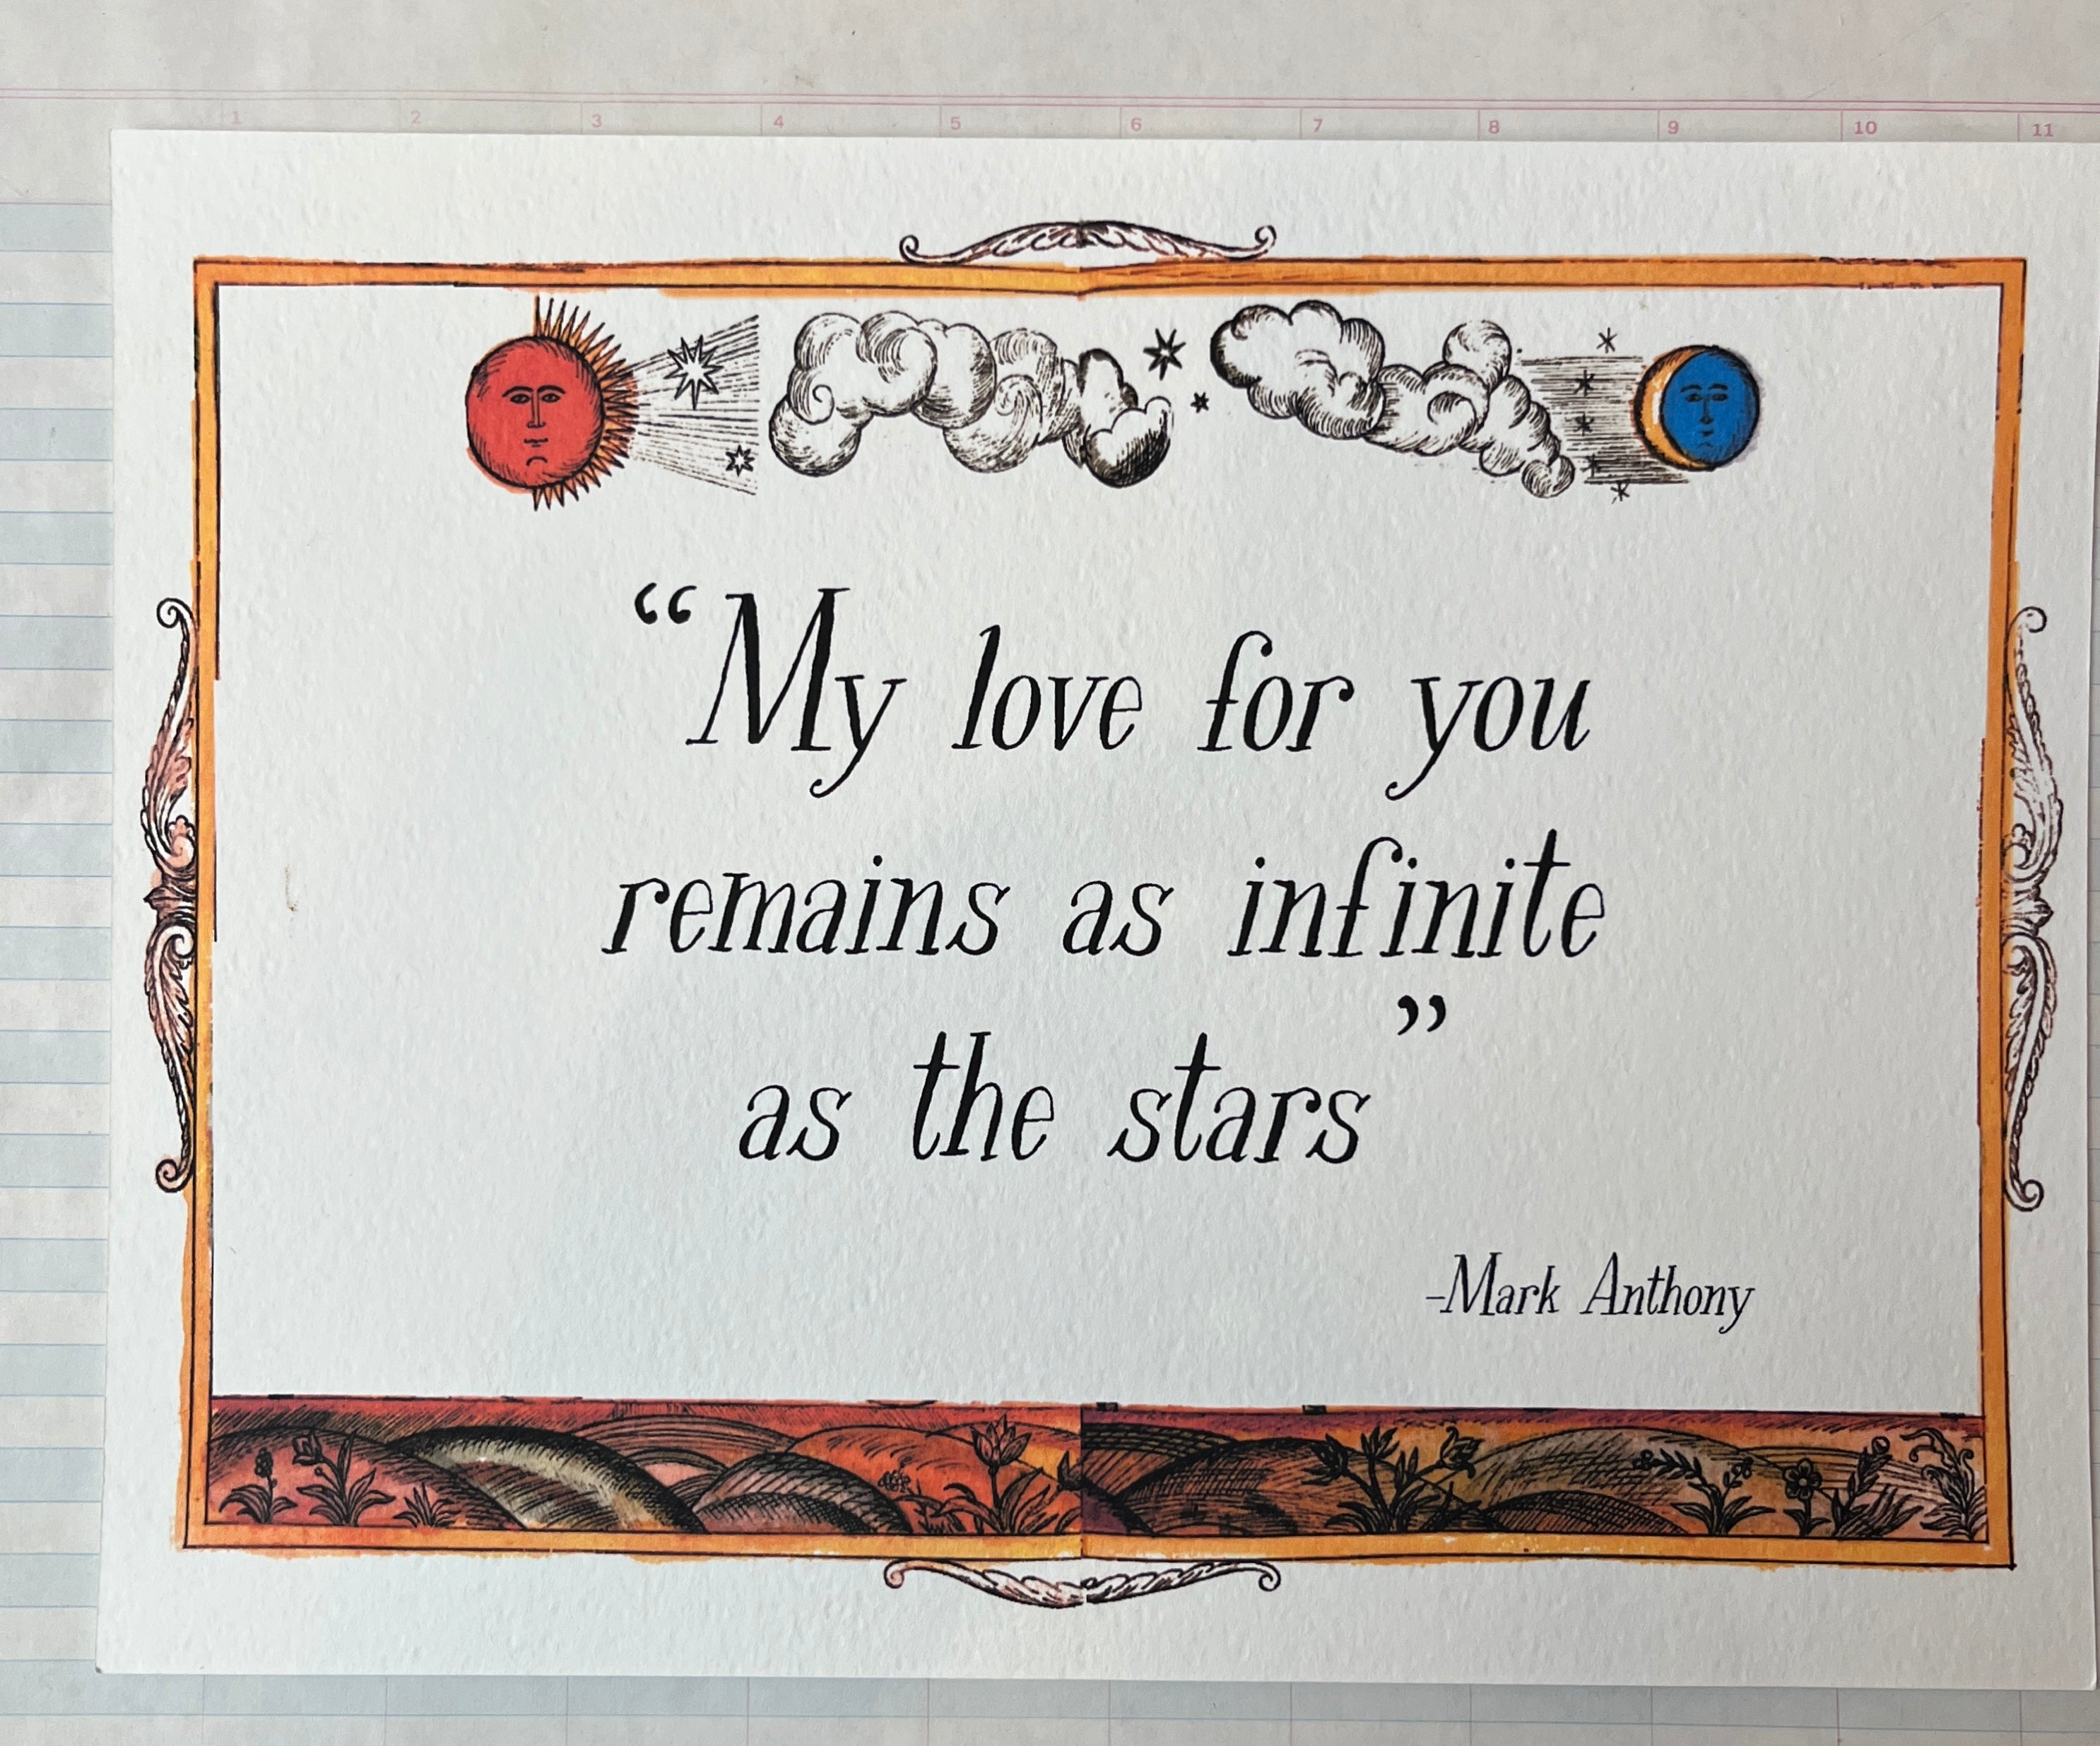 1 2 3 4 5 6 7 8 9 10 11
“My love for you
remains as infinite
as the stars”
-Mark Anthony